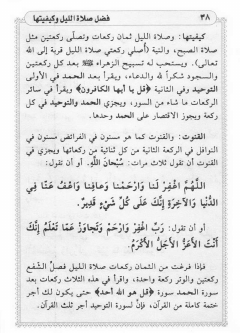 ٣٨ فضل صلاة الليل وكيفيتها
كيفيتها: وصلاة الليل ثمان ركعات وتصلّى ركعتين مثل
صلاة الصبح، والنية (أصلي ركعتي صلاة الليل قربة إلى الله
تعالى). ويستحب له تسبيح الزهراء بعد كل ركعتين
والسجود شكراً لله والدعاء، ويقرأ بعد الحمد في الأولى
التوحيد وفي الثانية (قل يا أيها الكافرون) ويقرأ في سائر
الركعات ما شاء من السور، ويجزي الحمد والتوحيد في كل
ركعة ويجوز الاقتصار على الحمد وحدها.
القنوت: والقنوت كما هو مسنون في الفرائض مسنون في
النوافل في الركعة الثانية من كل ثنائية من ركعاتها ويجزي
في القنوت أن تقول ثلاث مرات: سُبْحَانَ اللَّهِ. أو أن تقول:
اللَّهُمَّ اغْفِرْ لَنَا وَارْحَمْنَا وَعَافِنَا وَاعْفُ عَنَّا فِي
الدُّنْيَا وَالآخِرَةِ إِنَّكَ عَلَى كُلِّ شَيْءٍ قَدِيرٌ.
أو أن تقول: رَبِّ اغْفِرْ وَارْحَمْ وَتَجَاوَزْ عَمَّا تَعْلَمُ إِنَّكَ
أَنْتَ الأَعَزُّ الأَجَلُّ الأَكْرَمُ.
فإذا فرغت من الثمان ركعات صلاة الليل فصلّ الشفع
ركعتين والوتر ركعة واحدة، واقرأ في هذه الثلاث ركعات بعد
سورة الحمد سورة (قل هو الله أحد) حتى يكون لك أجر
ختمة كاملة من القرآن، فإنّ لسورة التوحيد أجر ثلث القرآن.